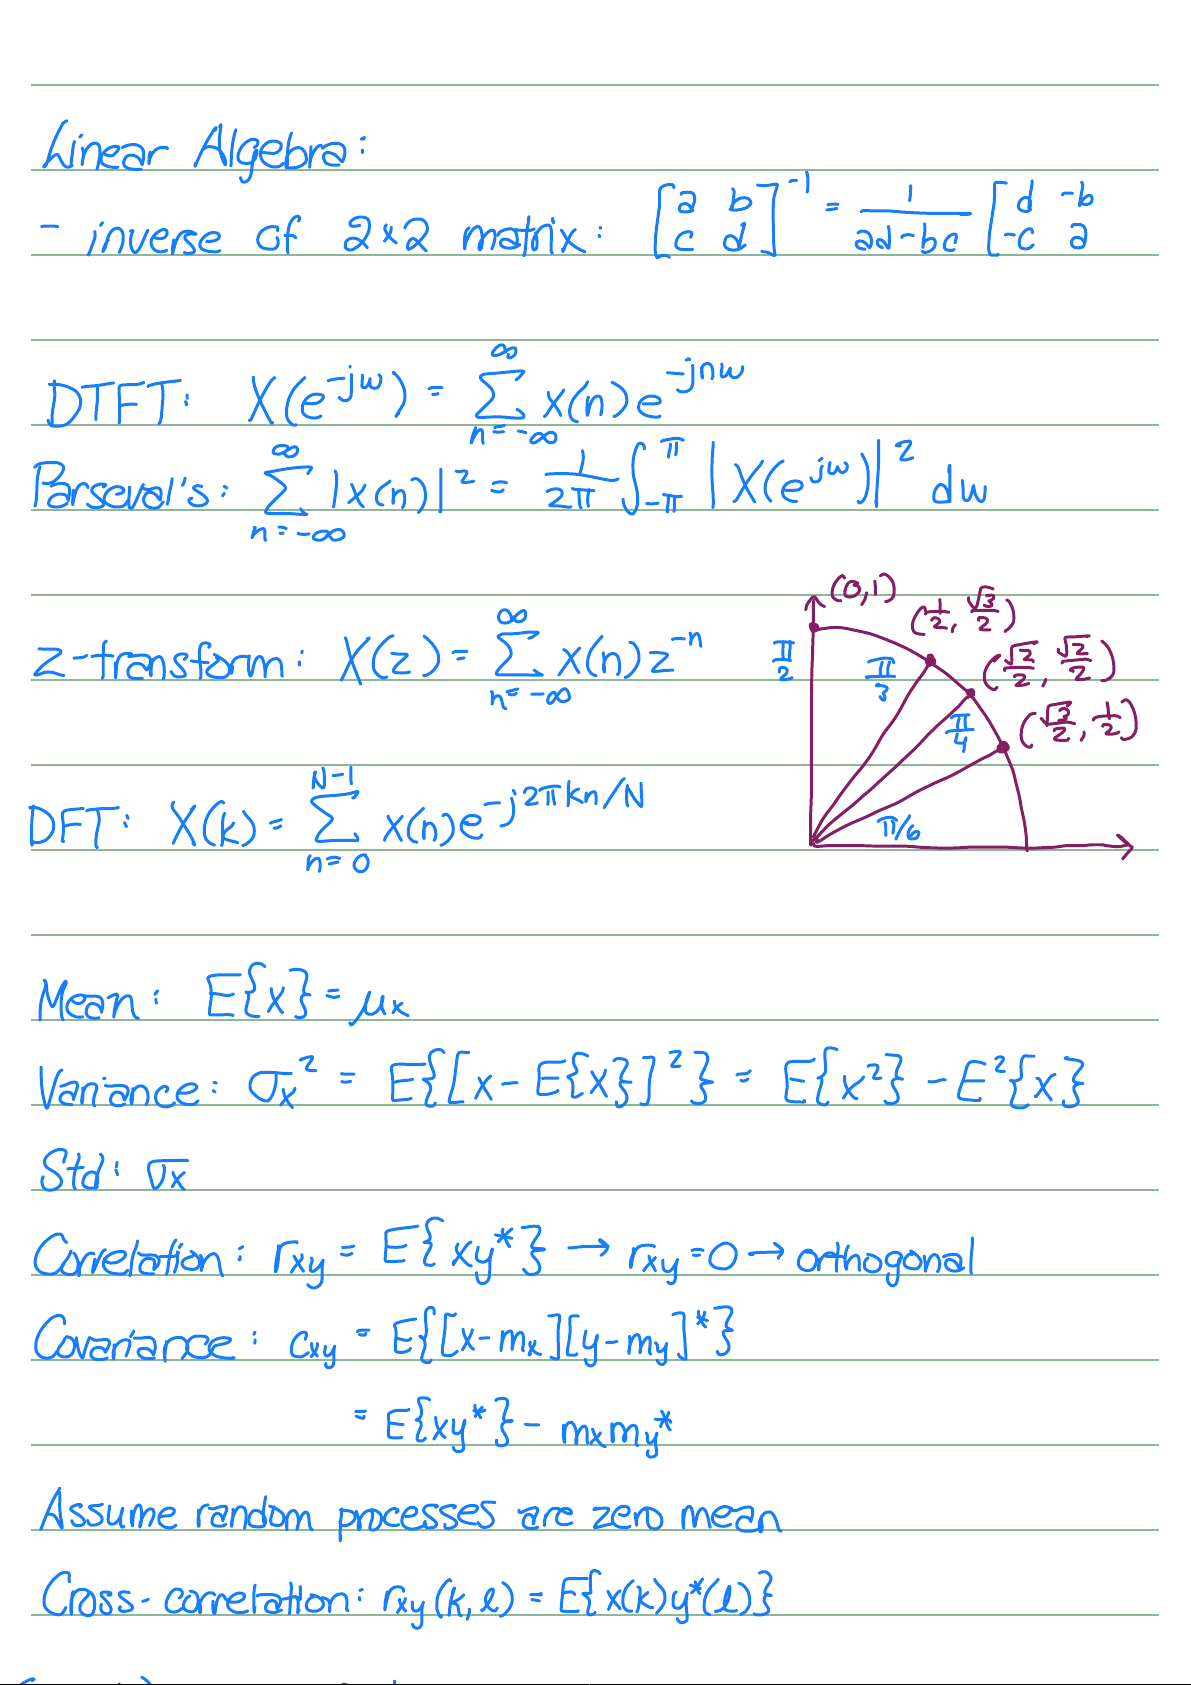 Linear Algebra:
- inverse of 2×2 matrix: [a b; c d]^-1 = 1/(ad-bc) [d -b; -c a
DTFT: X(e^-jω) = ∑_{n=-∞}^{∞} x(n)e^-jnω
Parseval's: ∑_{n=-∞}^{∞} |x(n)|² = 1/2π ∫_{-π}^{π} |X(e^jω)|² dω
(0,1)
(1/2, √3/2)
z-transform: X(z) = ∑_{n=-∞}^{∞} x(n)z^-n
π/2
π/3
(√2/2, √2/2)
π/4
(√3/2, 1/2)
DFT: X(k) = ∑_{n=0}^{N-1} x(n)e^-j2πkn/N
π/6
Mean: E{x} = μx
Variance: σx² = E{[x - E{x}]²} = E{x²} - E²{x}
Std: σx
Correlation: rxy = E{xy*} → rxy = 0 → orthogonal
Covariance: cxy = E{[x-mx][y-my]*}
= E{xy*} - mxmy*
Assume random processes are zero mean
Cross-correlation: rxy(k,l) = E{x(k)y*(l)}